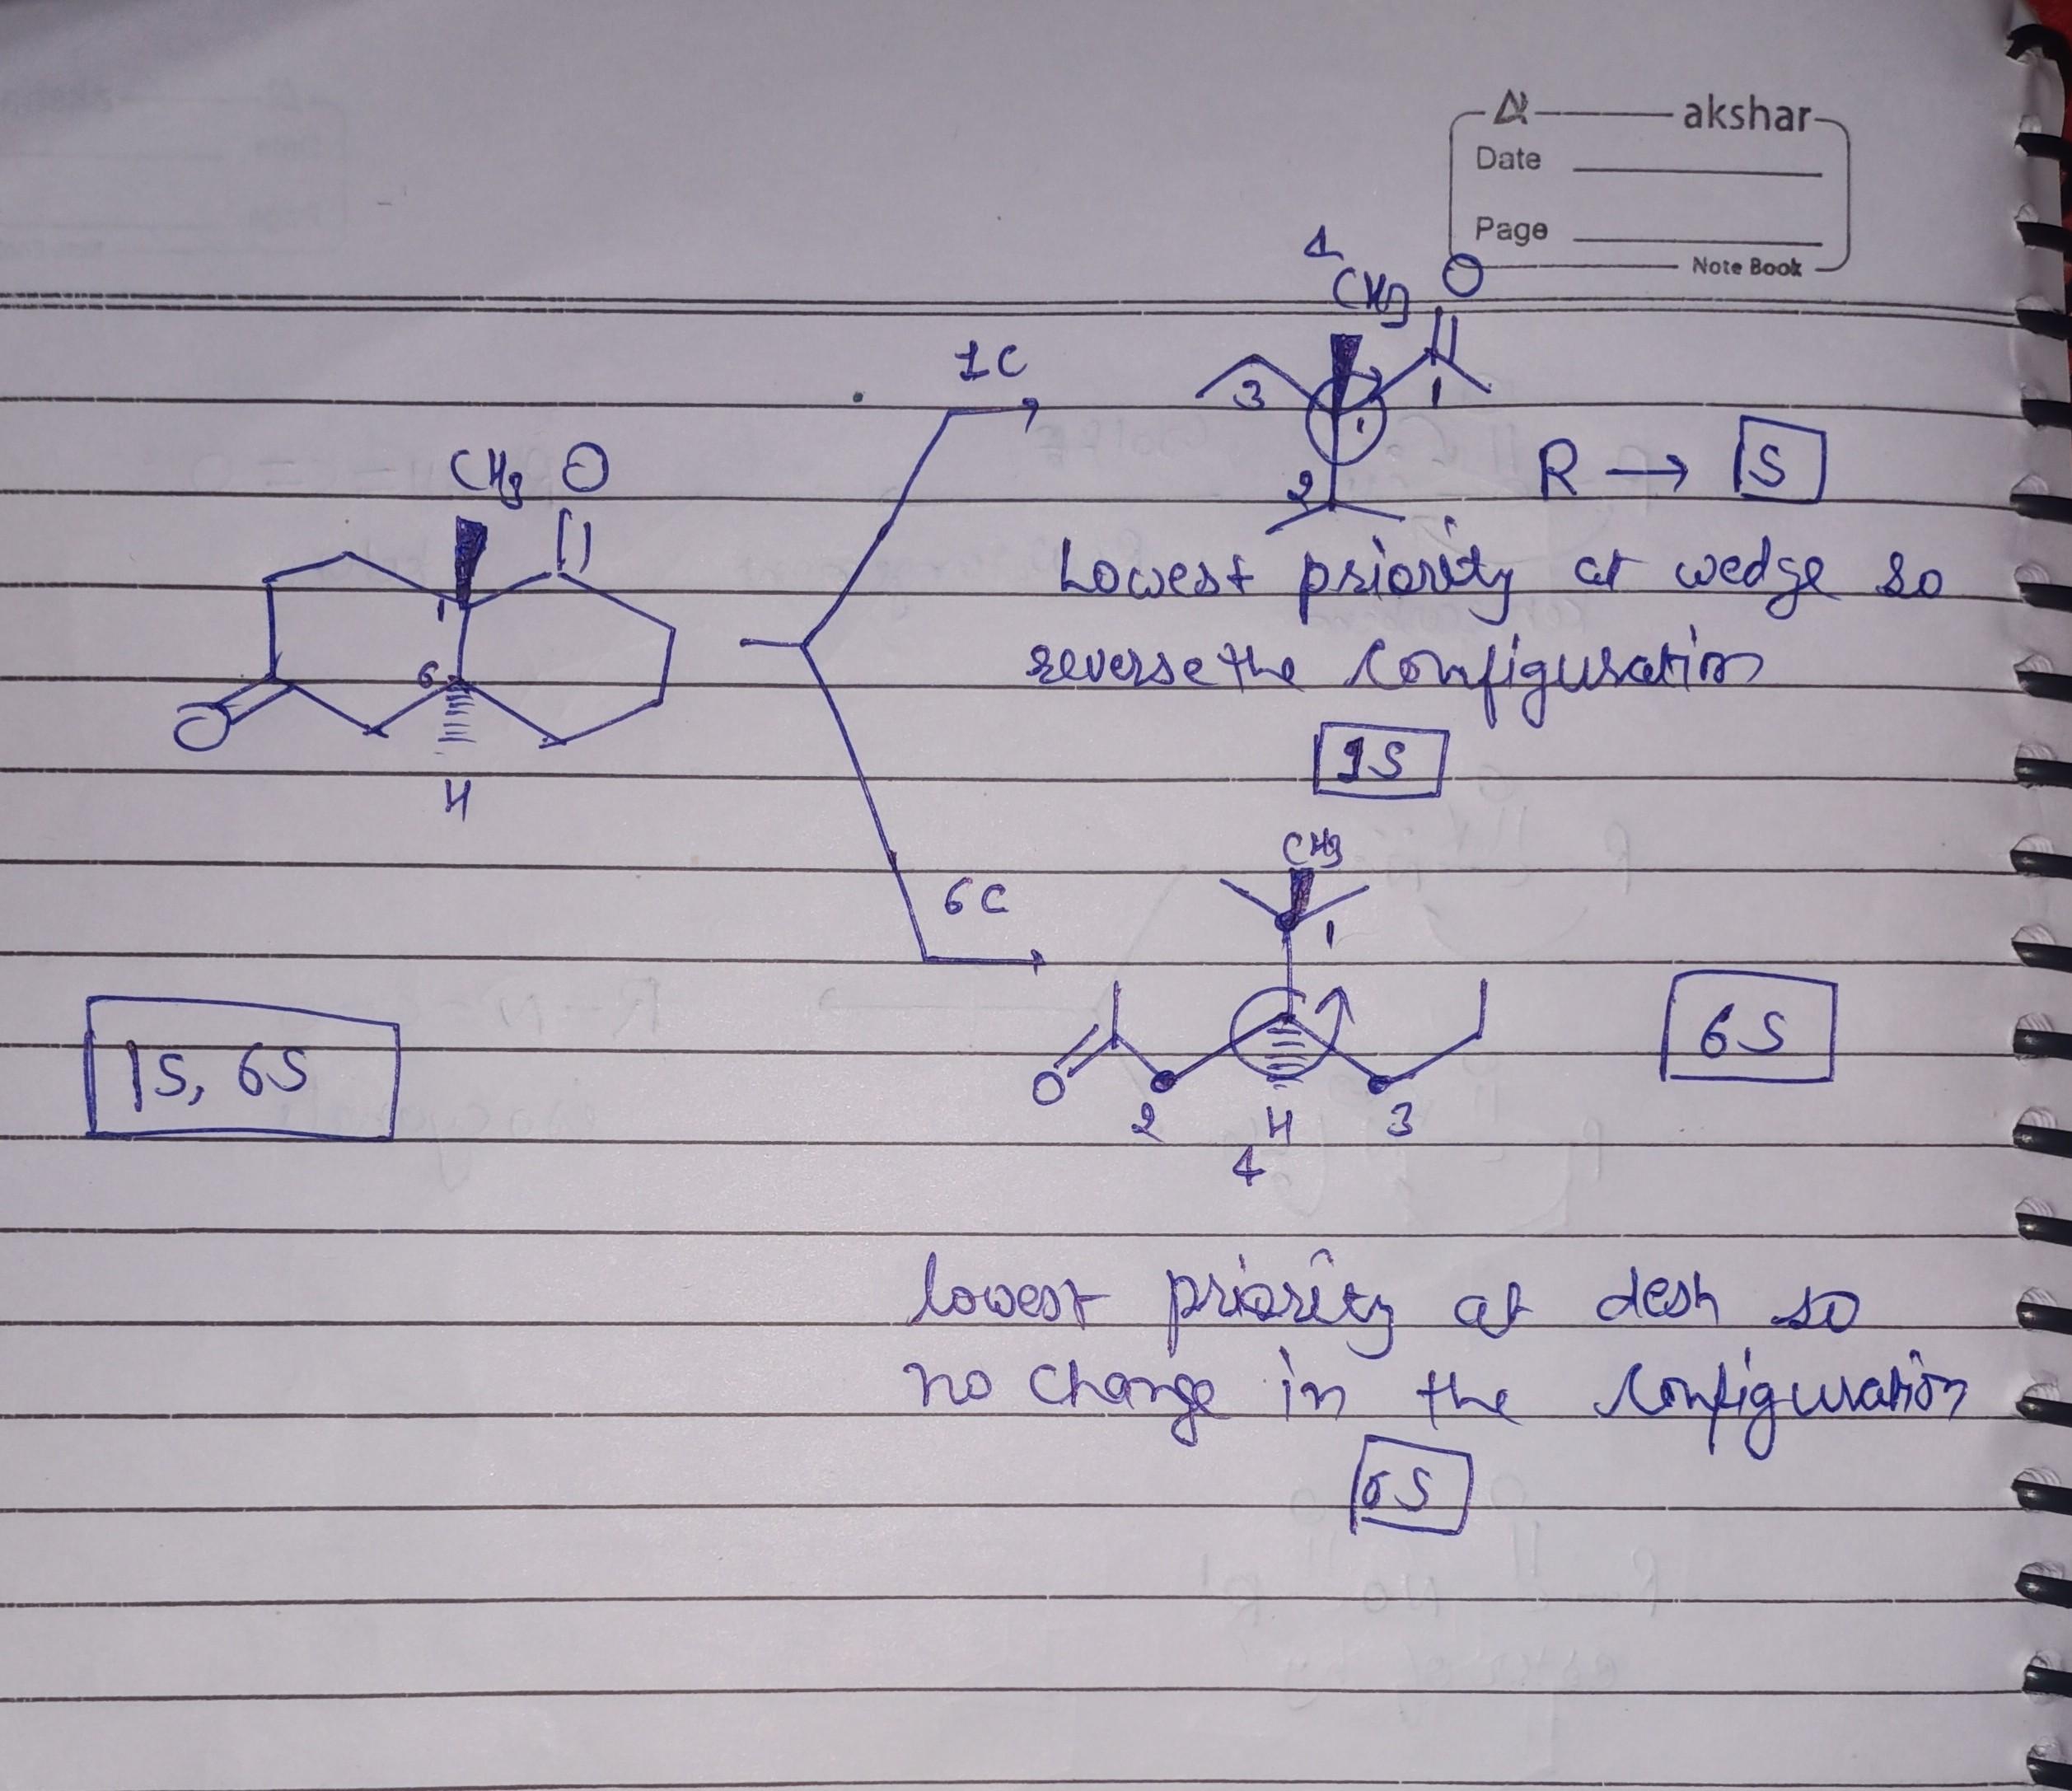 akshar
Date
Page
Note Book
4
CH3 O
1C
3 1
1
2
R → S
CH3 O
Lowest priority at wedge so
reverse the configuration
1
6
O
H
1S
CH3
6C
1
6S
1S, 6S
O
2 H 3
4
lowest priority at desh so
no change in the configuration
6S